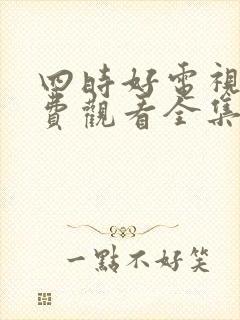 四時好電視
費觀看全集
一點不好笑